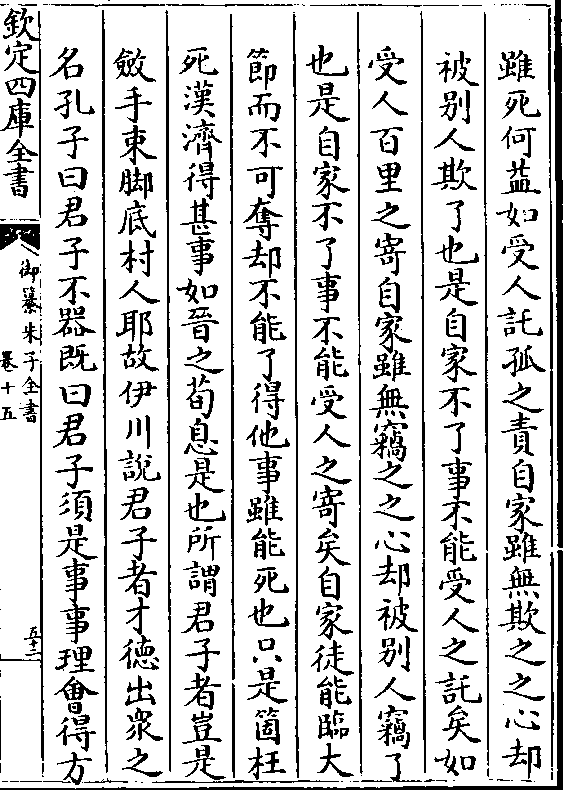 雖死何益如受人託孤之責自家雖無欺之之心却
被别人欺了也是自家不了事不能受人之託矣如
受人百里之寄自家雖無竊之之心却被别人竊了
也是自家不了事不能受人之寄矣自家徒能臨大
節而不可奪却不能了得他事雖能死也只是箇枉
死漢濟得甚事如晉之荀息是也所謂君子者豈是
斂手束脚底村人耶故伊川說君子者才德出衆之
名孔子曰君子不器既曰君子須是事事理會得方
欽定四庫全書
御纂朱子全書
卷十五
五十二